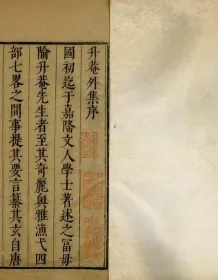 升菴外集序
國初迄于嘉隆文人學士著述之富毋
隃升菴先生者至其奇麗與雅漁弋四
部七畧之間事提其要言纂其玄自唐